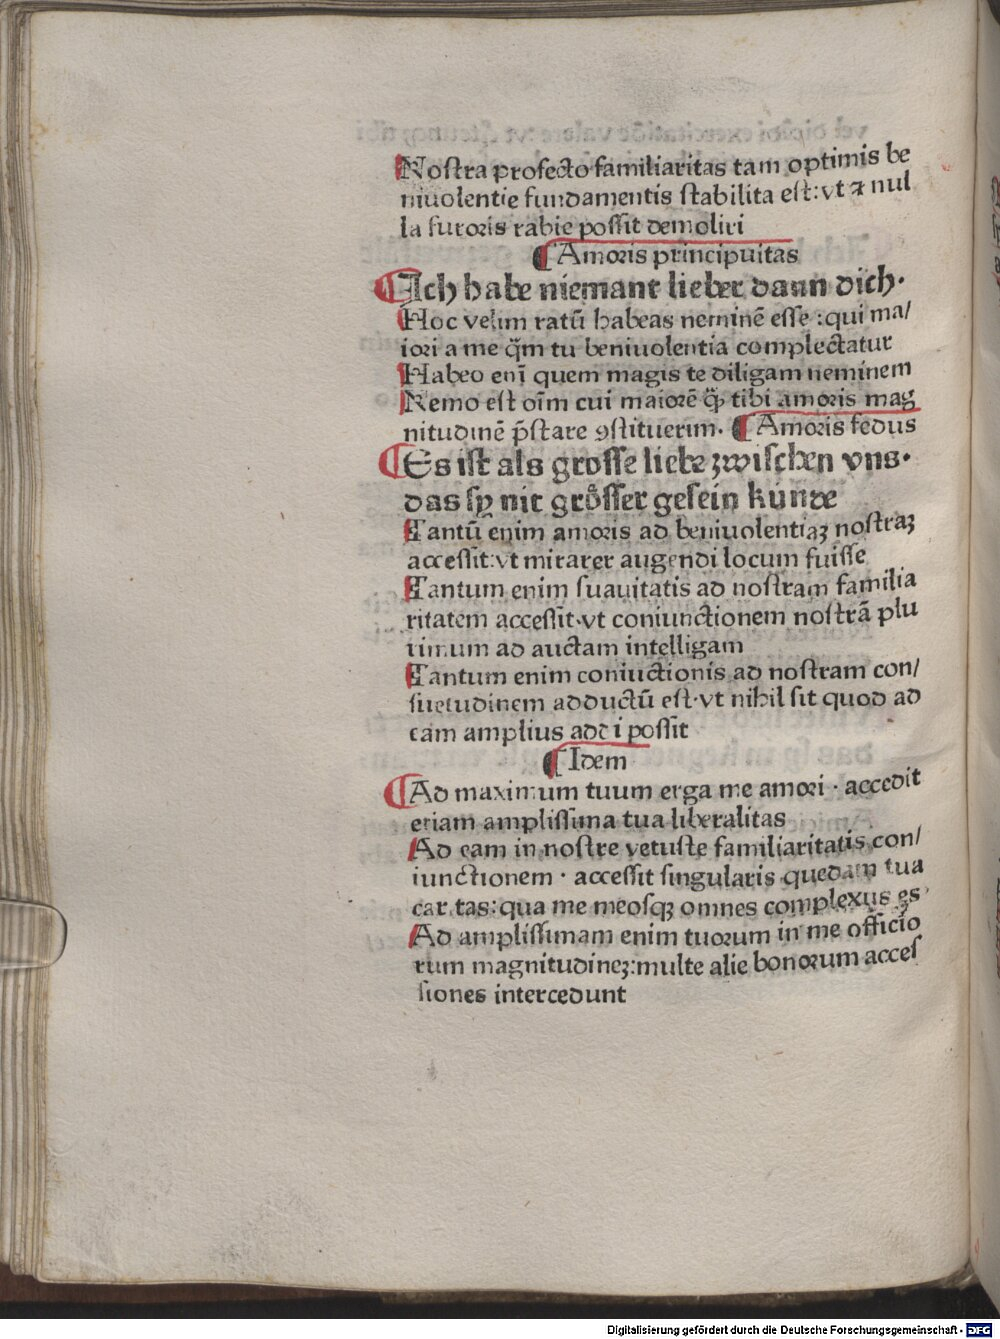 Nostra profecto familiaritas tam optimis be
niuolentie fundamentis stabilita est: vt ⁊ nul
la furoris rabie possit demoliri
¶ Amoris principuitas
¶ Ich habe niemant lieber dann dich.
Hoc velim ratū habeas neminē esse : qui ma/
iori a me q̄m tu beniuolentia complectatur
Habeo enī quem magis te diligam neminem
Nemo est oīm cui maiorē q̄ꝫ tibi amoris mag
nitudinē p̄stare ꝯstituerim. ¶ Amoris fedus
¶ Es ist als grosse liebe zwischen vns.
das sy nit grȯsser gesein kunde
Tantū enim amoris ad beniuolentiaꝫ nostraꝫ
accessit: vt mirarer augendi locum fuisse
Tantum enim suauitatis ad nostram familia
ritatem accessit. vt coniunctionem nostrā plu
rimum ad auctam intelligam
Tantum enim coniuctionis ad nostram con/
suetudinem adductū est. vt nihil sit quod ad
eam amplius addi possit
¶ Idem
¶ Ad maximum tuum erga me amori . accedit
etiam amplissima tua liberalitas
Ad eam in nostre vetuste familiaritatis con/
iunctionem . accessit singularis quedam tua
caritas: qua me meosqꝫ omnes complexus es
Ad amplissimam enim tuorum in me officio
rum magnitudineꝫ: multe alie bonorum acces
siones intercedunt
Digitalisierung gefördert durch die Deutsche Forschungsgemeinschaft - DFG